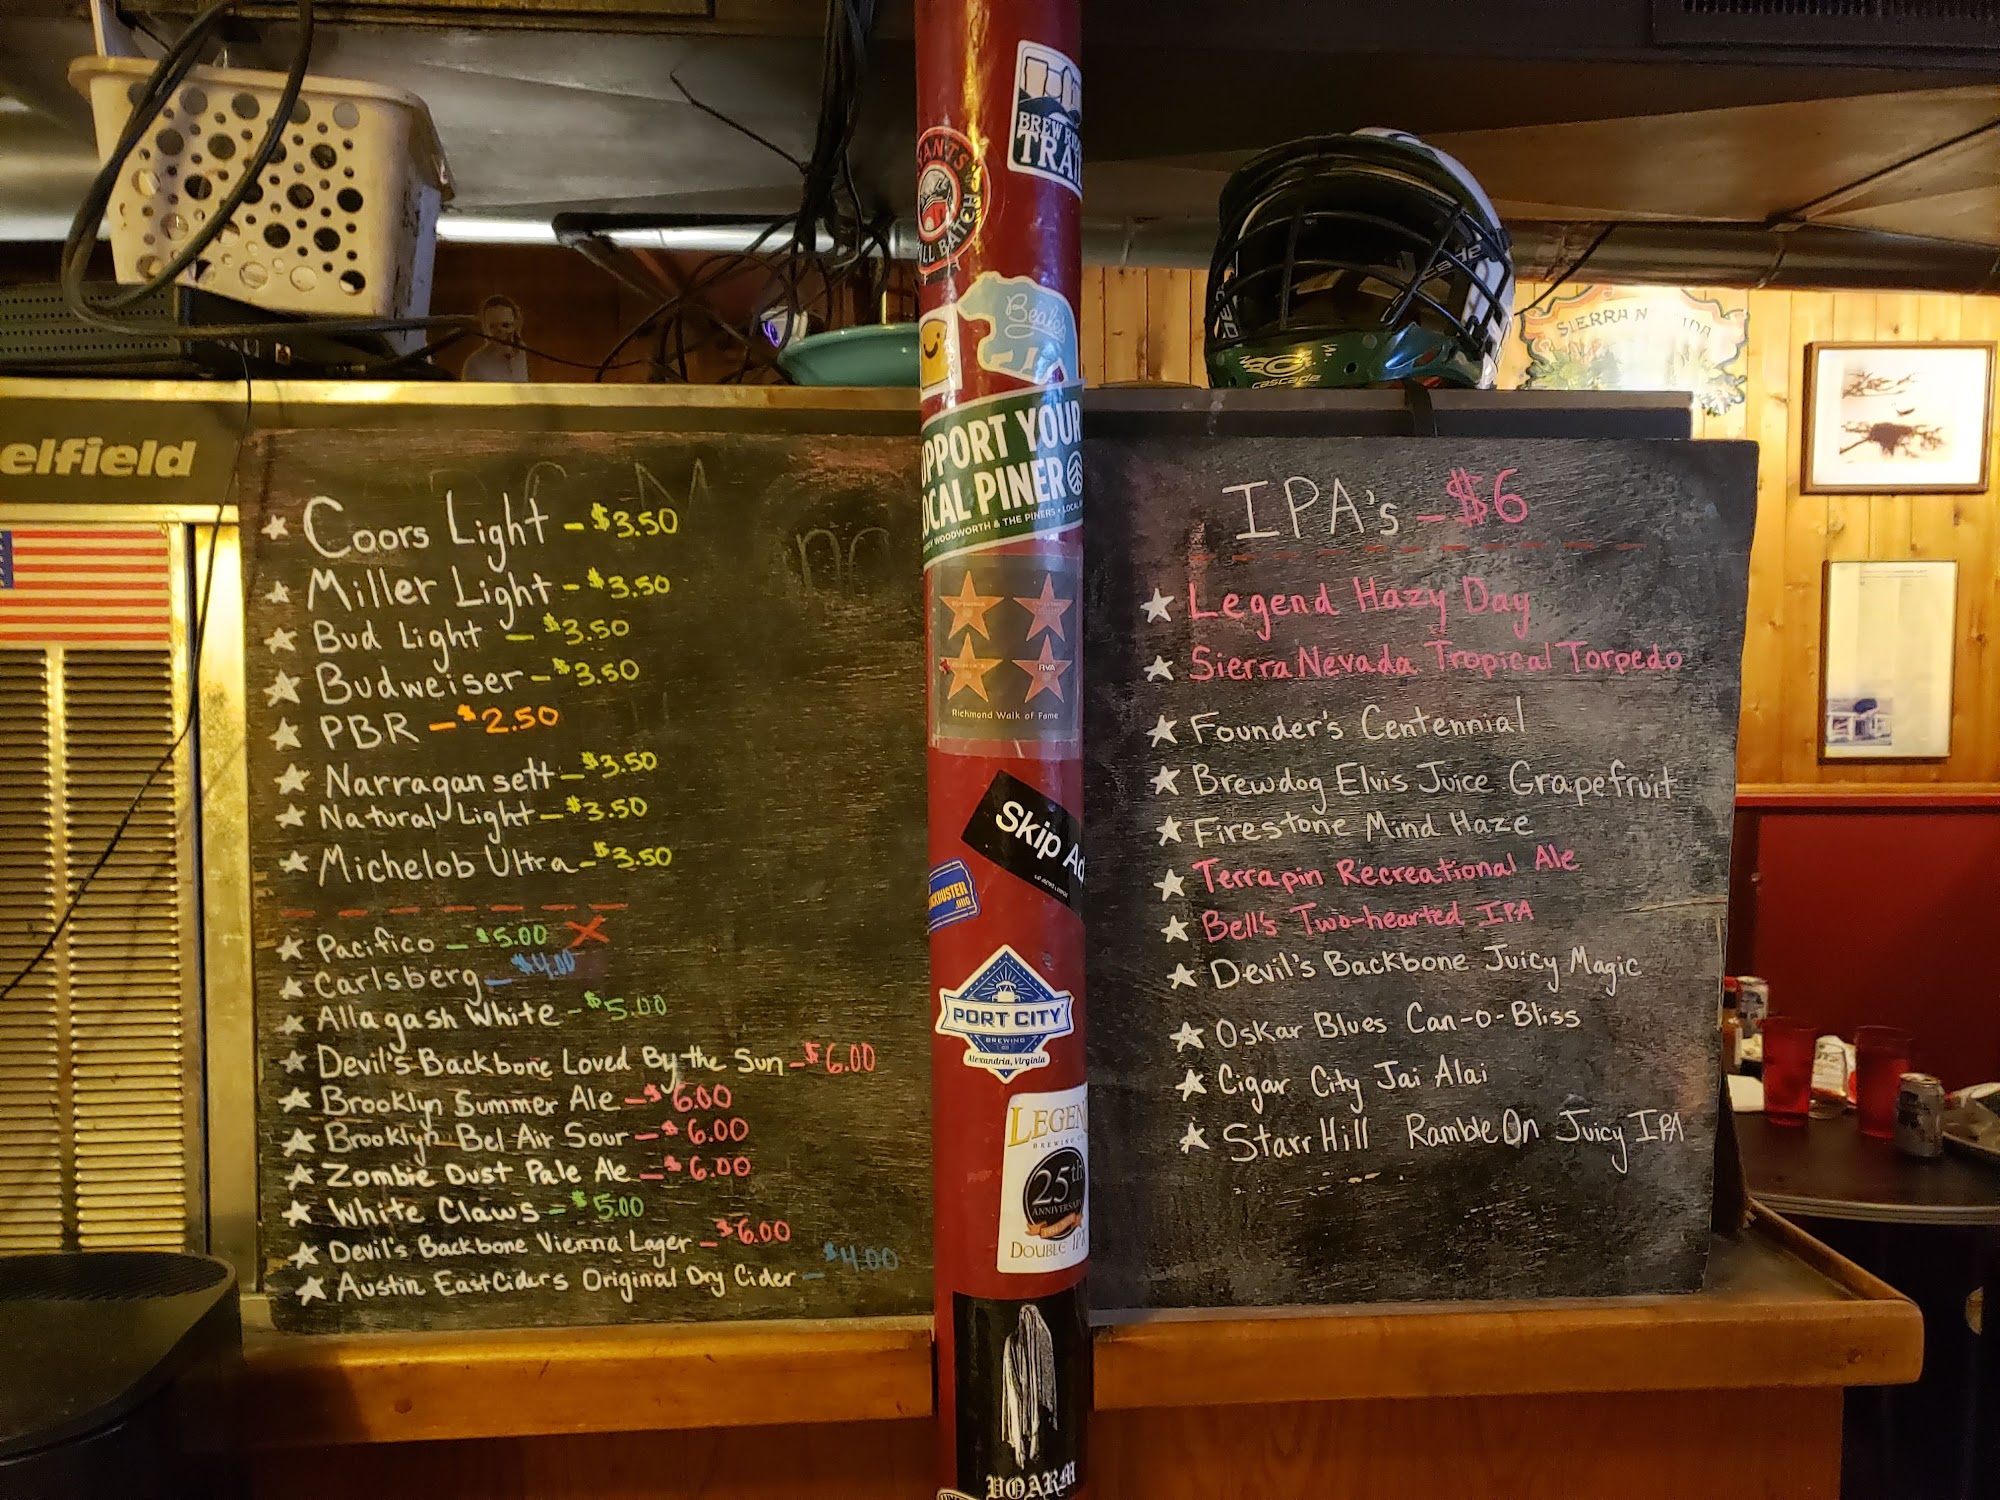 elfield
Coors Light - $3.50
Miller Light - $3.50
Bud Light - $3.50
Budweiser - $3.50
PBR - $2.50
Narragansett - $3.50
Natural Light - $3.50
Michelob Ultra - $3.50
Pacifico - $5.00 X
Carlsberg - $4.00
Allagash White - $5.00
Devil's Backbone Loved By the Sun - $6.00
Brooklyn Summer Ale - $6.00
Brooklyn Bel Air Sour - $6.00
Zombie Dust Pale Ale - $6.00
White Claws - $5.00
Devil's Backbone Vienna Lager - $6.00
Austin EastCiders Original Dry Cider - $4.00
BREW RIDGE
TRAIL
Beale's
SUPPORT YOUR
LOCAL PINER
WOODWORTH & THE PINERS
RVA
Richmond Walk of Fame
Skip Ad
PORT CITY
BREWING
CO
Alexandria, Virginia
LEGEND
BREWING
25th
ANNIVERSARY
DOUBLE IPA
VOARM
cascade
cascade
SIERRA NEVADA
IPA's - $6
Legend Hazy Day
Sierra Nevada Tropical Torpedo
Founder's Centennial
Brewdog Elvis Juice Grapefruit
Firestone Mind Haze
Terrapin Recreational Ale
Bell's Two-hearted IPA
Devil's Backbone Juicy Magic
Oskar Blues Can-o-Bliss
Cigar City Jai Alai
Starr Hill Ramble On Juicy IPA